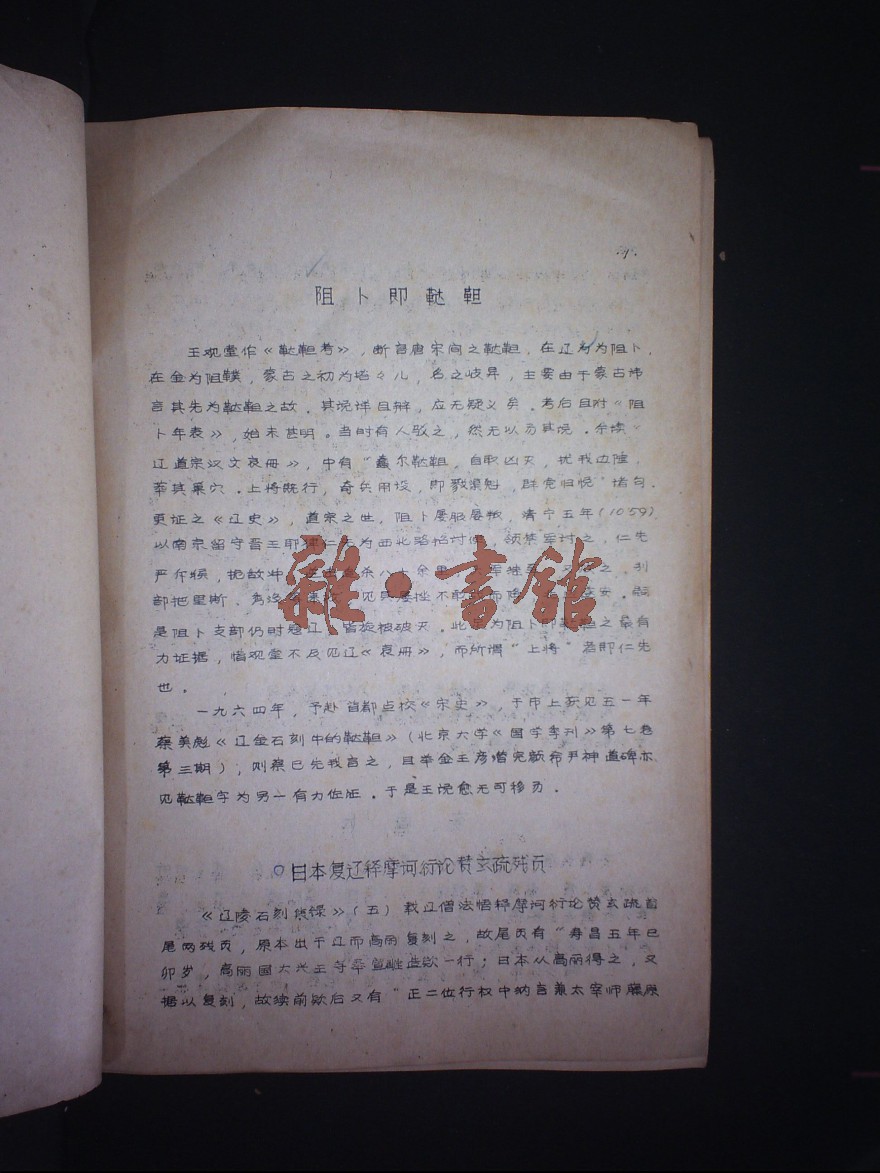 阻卜即鞑靼
王观堂作《鞑靼考》，断言唐宋间之鞑靼，在辽为为阻卜，
在金为阻䪁，蒙古之初为塔々儿，名之歧异，主要由于蒙古讳
言其先为鞑靼之故．其说详且辩，应无疑义矣．考后且附《阻
卜年表》，始末甚明．当时有人驳之，然无以易其说．余读《
辽道宗汉文哀册》，中有“蠢尔鞑靼，自取凶灭，扰我边陲，
莽其巢穴．上将既行，奇兵用设，即戮渠魁，群党归悦”诸句．
更证之《辽史》，道宗之世，阻卜屡服屡叛，清宁五年（1059）
以南京留守晋王耶律仁先为西北路招讨使，领禁军讨之，仁先
严斥堠，扼敌冲，追杀八十余里，
部把里斯、见其屡挫不敢
是阻卜支部仍时题辽，皆旋被破灭．此为阻卜即鞑靼之最有
力证据，惜观堂不及见辽《哀册》，而所谓“上将”者即仁先
也．
一九六四年，予赴首都点校《宋史》，于市上获见五一年
蔡美彪《辽金石刻中的鞑靼》（北京大学《国学季刊》第七卷
第三期），则蔡已先我言之，且举金王彦潜完颜希尹神道碑亦
见鞑靼字为另一有力佐证．于是王说愈无可移易．
○日本复辽释摩诃衍论赞玄疏残页
《辽陵石刻集录》（五）载辽僧法悟释摩诃衍论赞玄疏首
尾两残页，原本出于辽而高丽复刻之，故尾页有“寿昌五年己
卯岁，高丽国大兴王寺奉宣雕造款一行；日本从高丽得之，又
据以复刻，故续前款后又有“正二位行权中纳言兼太宰师藤原
雜·書館